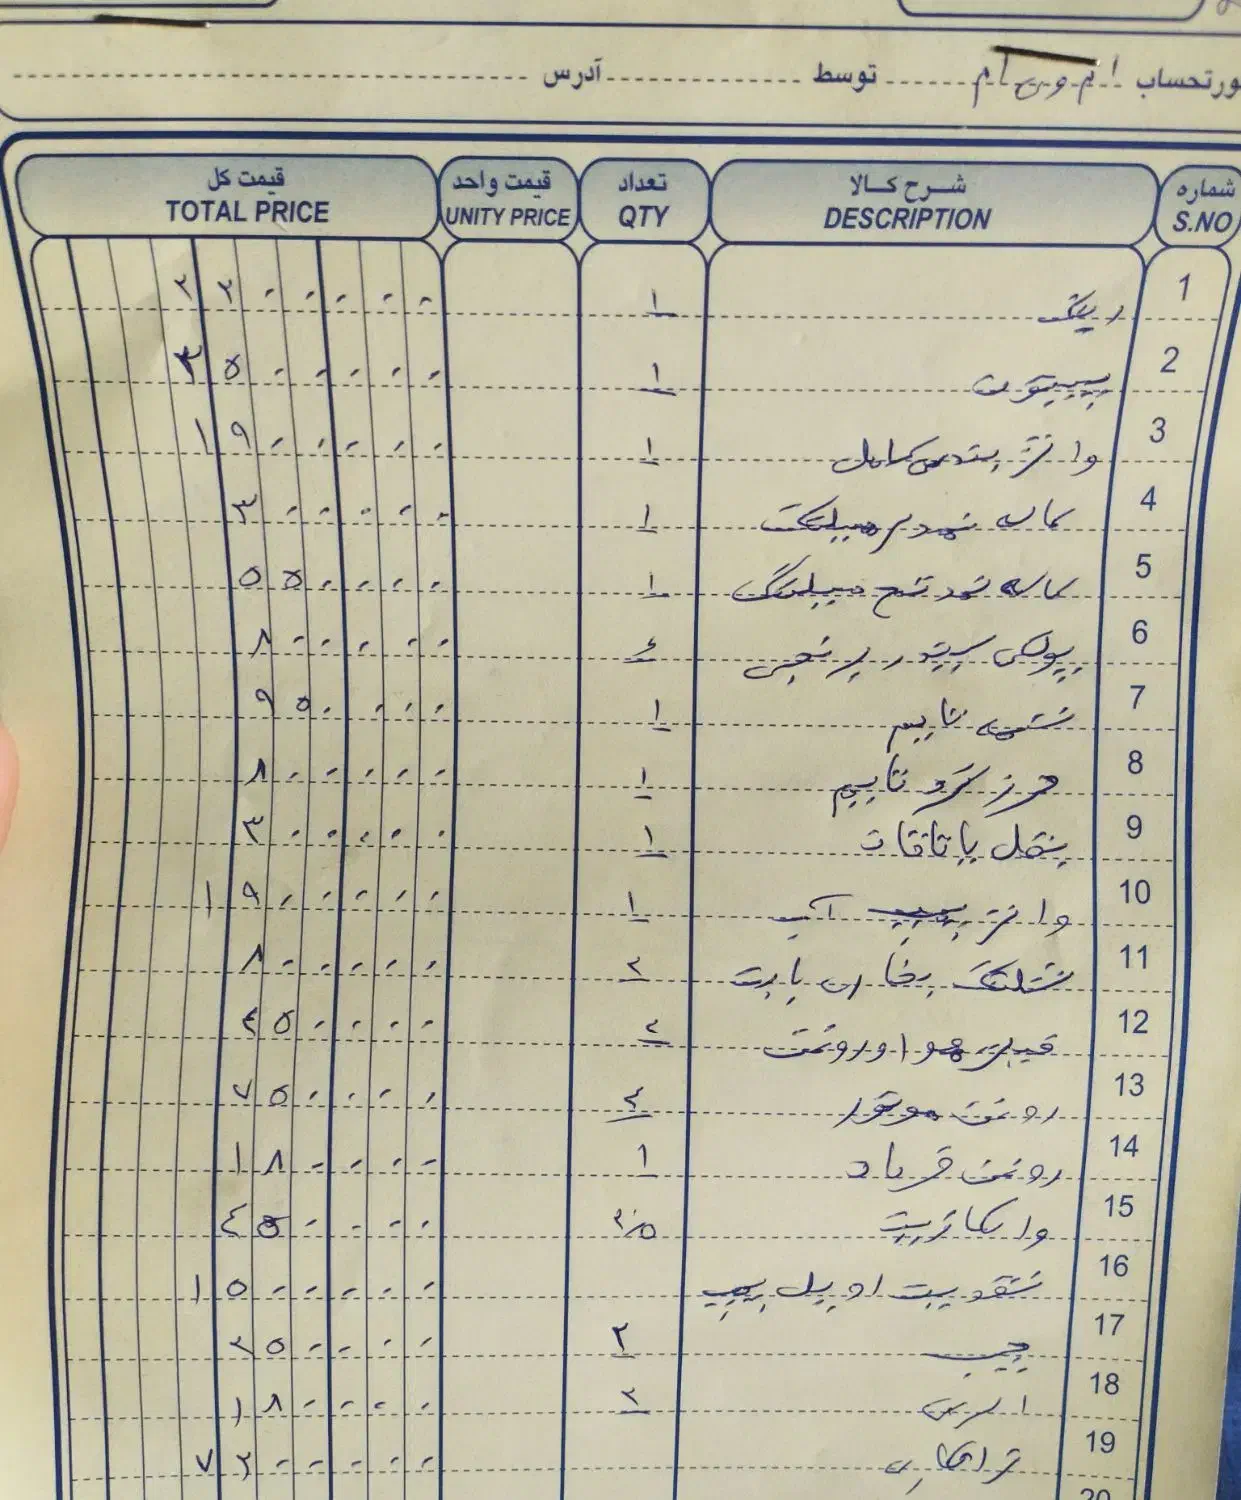 ورتحساب ا.م.و.ج.ا.م توسط آدرس
شماره S.NO شرح کالا DESCRIPTION تعداد QTY قیمت واحد UNITY PRICE قیمت کل TOTAL PRICE
1 رینگ ۱ ۲۲۰۰۰۰۰
2 پیستون ۱ ۳۵۰۰۰۰۰
3 واتر کامل ۱ ۱۹۰۰۰۰۰
4 کاسه نمد سر میبلنگ ۱ ۳۰۰۰۰۰
5 کاسه نمد ته میبلنگ ۱ ۵۵۰۰۰۰
6 پولکی برنجی ٤ ۸۰۰۰۰۰
7 تسمه تایم ۱ ۹۵۰۰۰۰
8 هرز گرد تایم ۱ ۸۰۰۰۰۰
9 یاتاقات ۱ ۳۰۰۰۰۰
10 واتر پمپ آب ۱ ۱۹۰۰۰۰۰
11 شلنگ بخاری بابت ۲ ۸۰۰۰۰۰
12 هوا و روغن ۲ ٤۵۰۰۰۰
13 روغن موتور ٤ ۷۵۰۰۰۰
14 روغن ۱ ۱۸۰۰۰۰
15 واسکازین ۲/۵ ٤۵۰۰۰۰
16 اویل پمپ ۱۵۰۰۰۰۰
17 چسب ۲ ۲۵۰۰۰۰
18 ۲ ۱۸۰۰۰۰
19 تراشکاری ۷۲۰۰۰۰۰
20